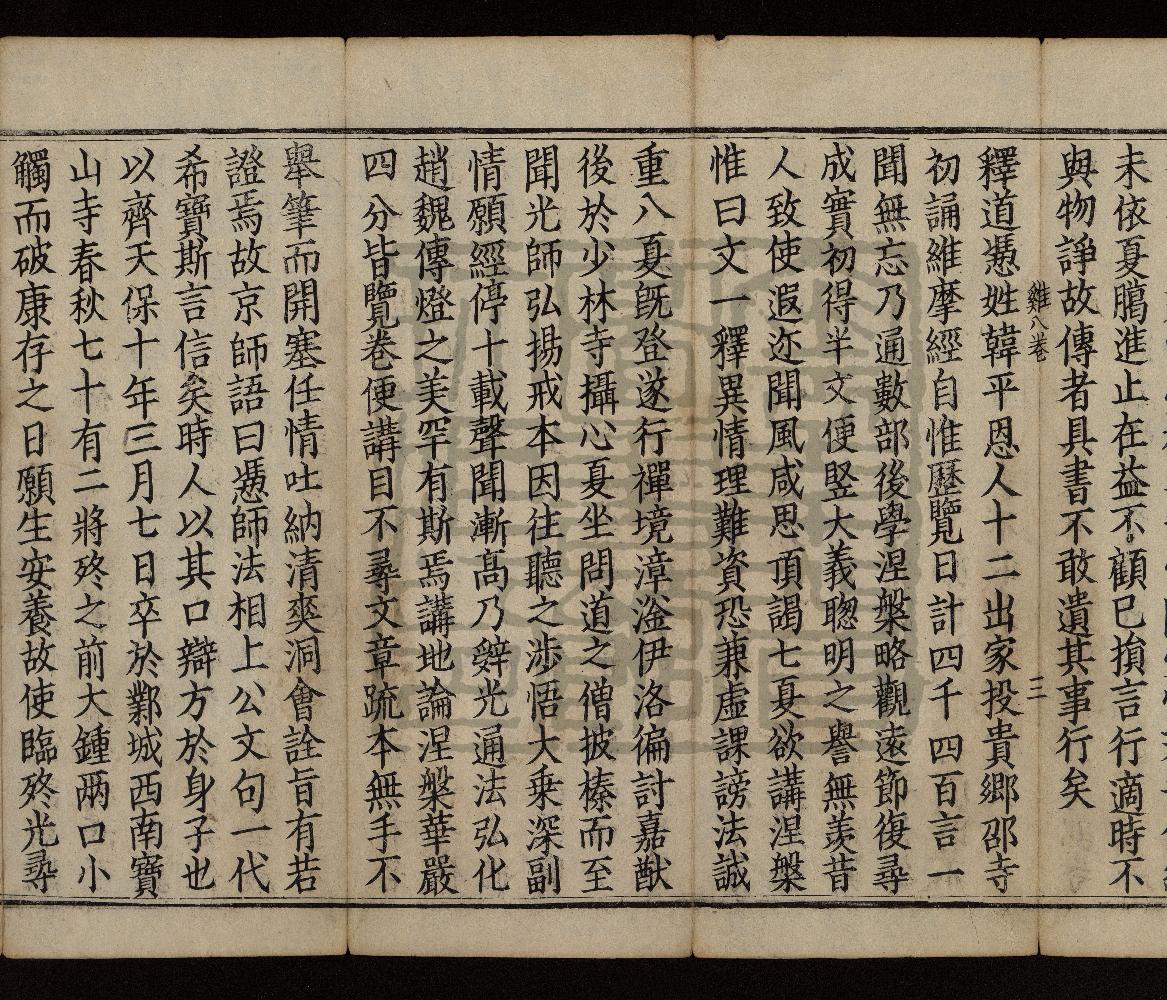 未依夏臈進止在益不顧已損言行適時不
與物諍故傳者具書不敢遺其事行矣
雞八卷 三
釋道憑姓韓平恩人十二出家投貴鄉邵寺
初誦維摩經自惟歷覽日計四千四百言一
聞無忘乃通數部後學涅槃略觀遠節復尋
成實初得半文便竪大義聰明之譽無羨昔
人致使遐迩聞風咸思頂謁七夏欲講涅槃
惟曰文一釋異情理難資恐兼虛課謗法誠
重八夏旣登遂行禪境漳滏伊洛徧討嘉猷
後於少林寺攝心夏坐問道之僧披榛而至
聞光師弘揚戒本因往聽之涉悟大乗深副
情願經停十載聲聞漸高乃辭光通法弘化
趙魏傳燈之美罕有斯焉講地論涅槃華嚴
四分皆覽卷便講目不尋文章疏本無手不
舉筆而開塞任情吐納清爽洞會詮旨有若
證焉故京師語曰憑師法相上公文句一代
希寶斯言信矣時人以其口辯方於身子也
以齊天保十年三月七日卒於鄴城西南寶
山寺春秋七十有二將終之前大鍾兩口小
觸而破康存之日願生安養故使臨終光尋